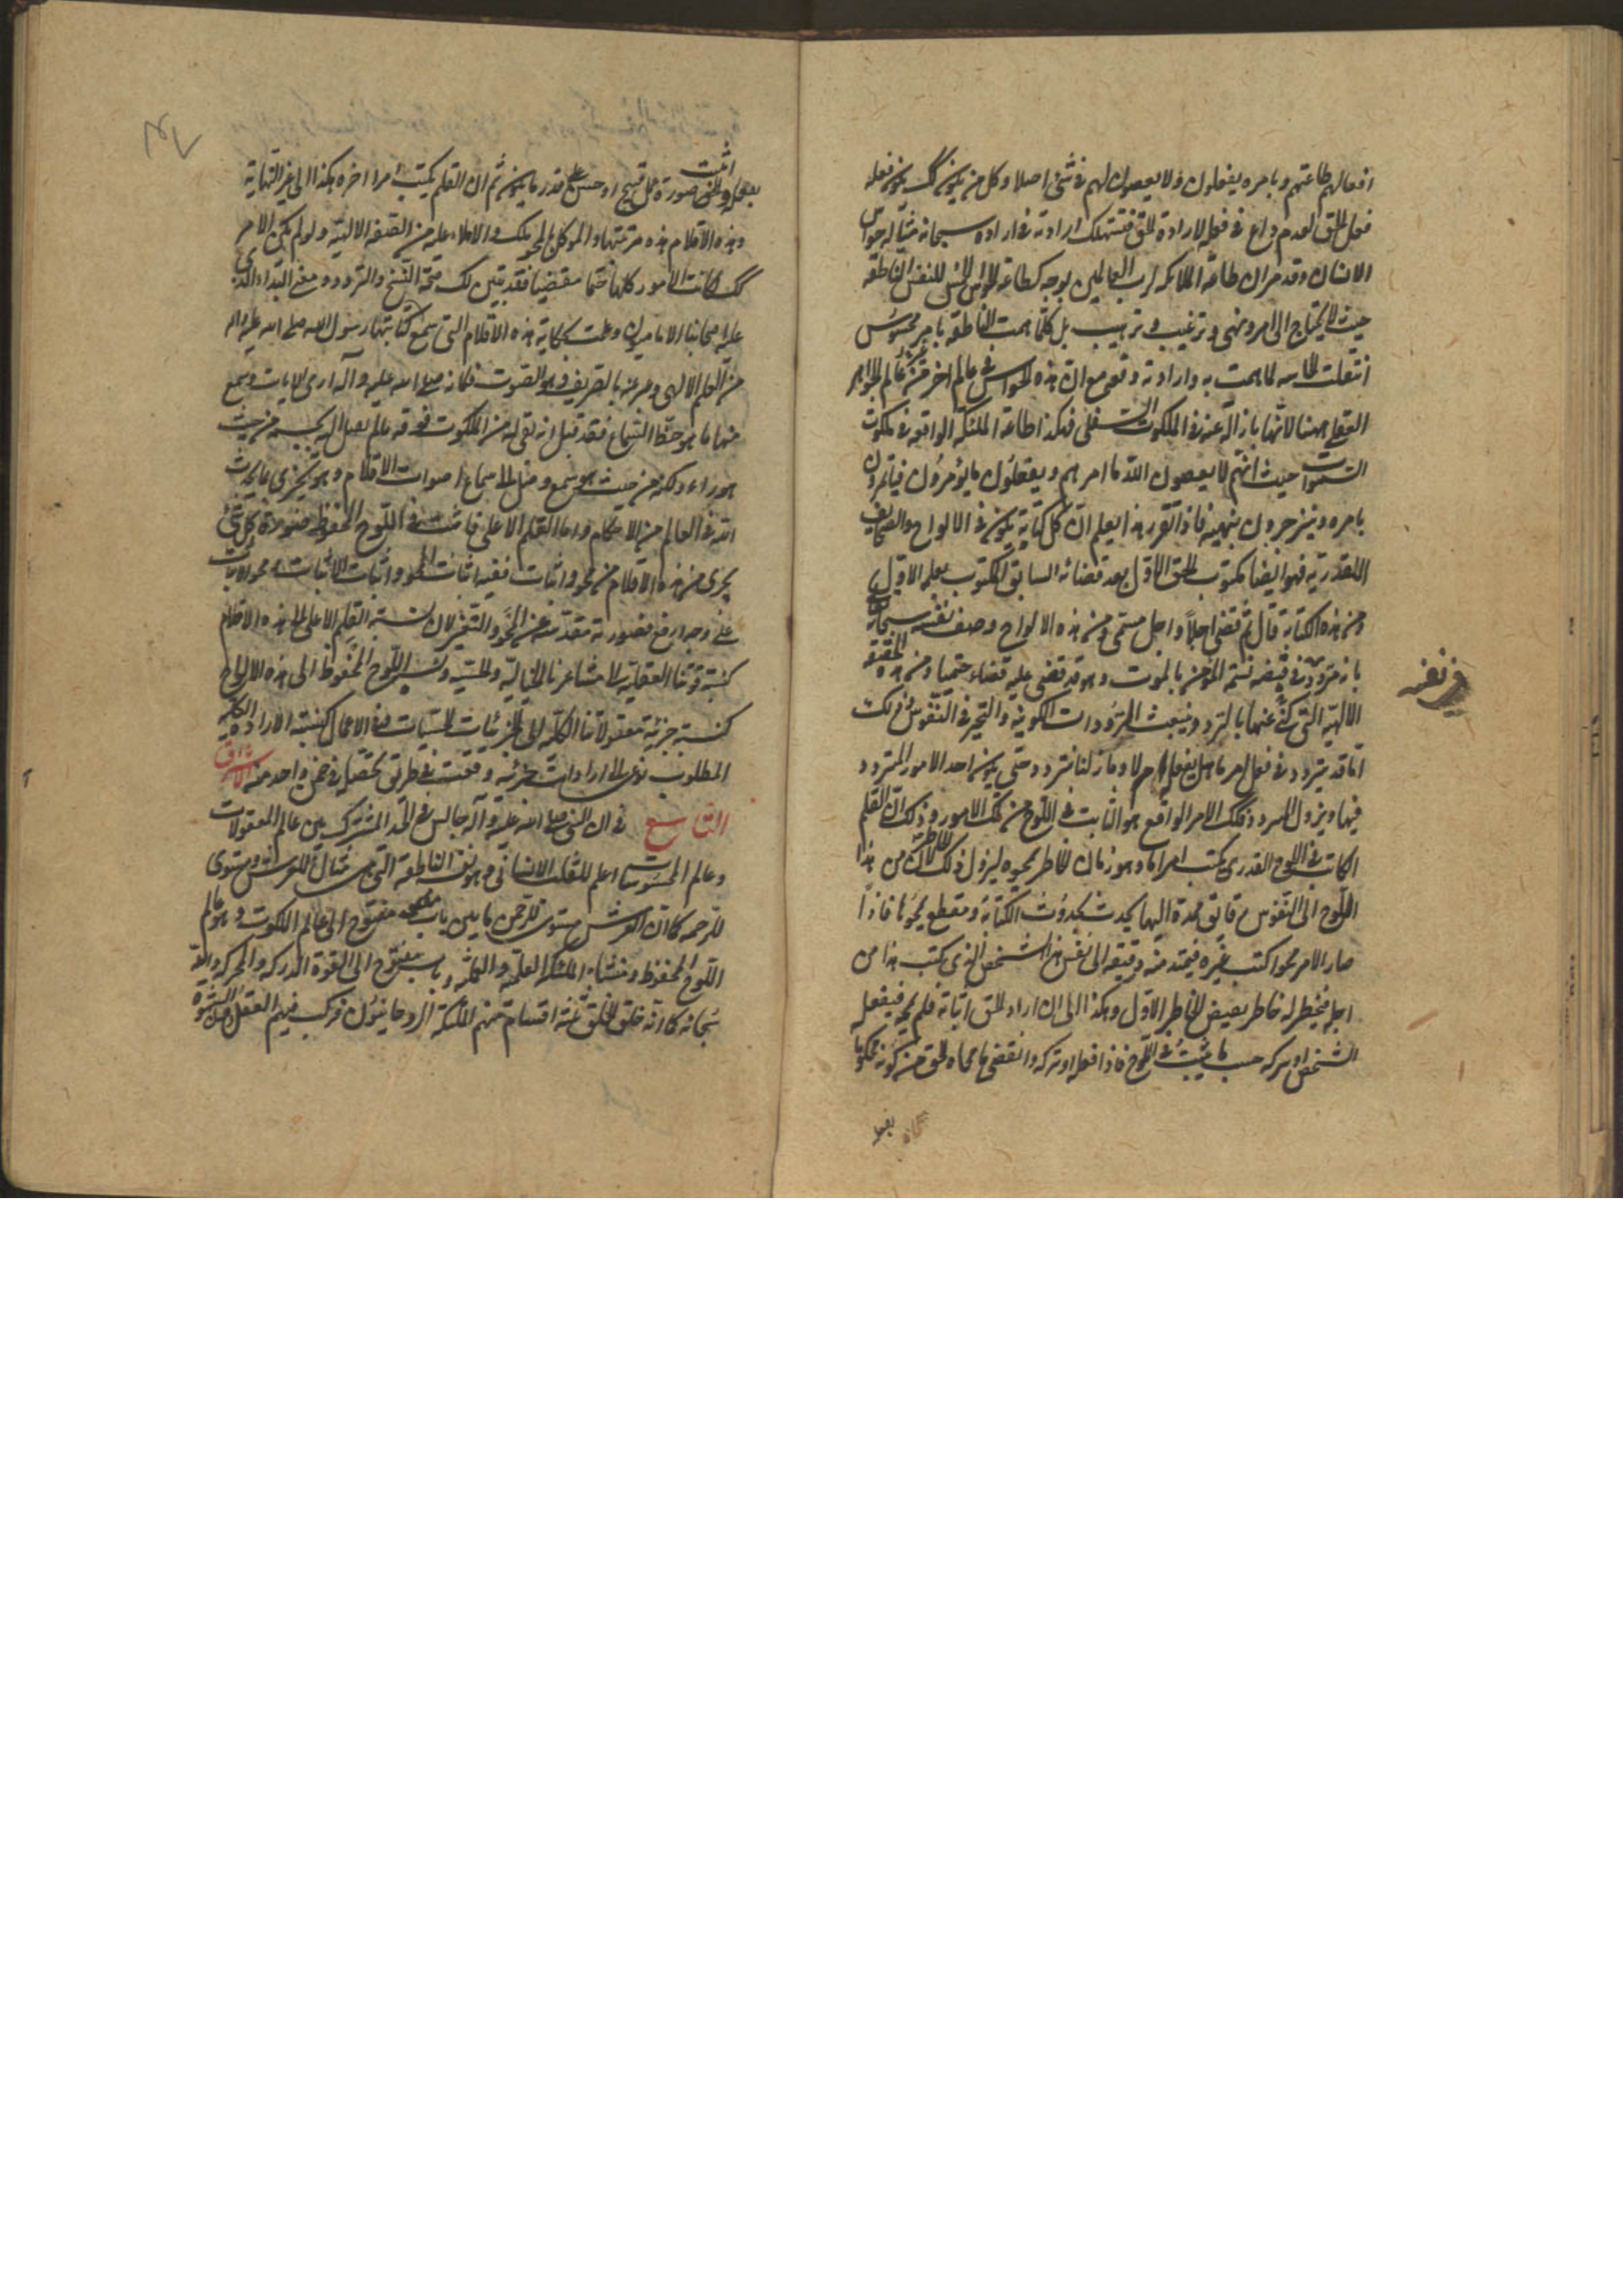 افعالهم طاعتهم وبامره يفعلون ولا يعصون لهم في شئ اصلا وكل من يكون كك يكون فعله
فعل الحق لعدم داع في فعله الا ارادة الحق فتستهلك ارادته في ارادة سبحانه مثاله حواس
الانسان وقد مر ان طاعة الملائكه لرب العالمين بوجه كطاعة الحواس للنفس الناطقه
حيث لا يحتاج الى امر ونهى وترغيب وترهيب بل كلما همت الناطقه بامر محسوس
انتقلت الحاسه لما همت به وارادته وقع مع ان هذه الحواس في عالم اخر من عالم الجواهر
العقلي لانها نازلة عنه في الملكوت السفلى فهكذا اطاعة الملئكة الواقعه في ملكوت
السموات حيث انهم لا يعصون الله ما امرهم ويفعلون ما يؤمرون فياتمرون
بامره وينزجرون بنهيه فاذا تقرر هذا يعلم ان كل كتابة يكون في الالواح والصحايف
القدرية فهو ايضا مكتوب الحق الاول بعد قضائه السابق المكتوب بعلمه الاول
ومن هذه الكتابة قال ثم قضى اجلا واجل مسمى ومن هذه الالواح وصف نفسه سبحانه
بانه تردد في قبضه نسمة المؤمن بالموت وهو قد قضى عليه قضاء حتميا ومن هذه الحقيقه
الالهية التي كنى عنها بالتردد ينبعث الترددات الكونيه والتحير في النفوس وذلك
انا قد نتردد في فعل امر ما هل نفعله ام لا وما زلنا نتردد حتى يكون احد الامور المتردد
فيها ويزول التردد فذلك الامر الواقع هو الثابت في اللوح من تلك الامور وذلك ان القلم
الكاتب في اللوح القدرى يكتب امرا ما وهو زمان الخاطر ثم يمحوه فيزول ذلك الخاطر لان من هذا
اللوح الى النفوس رقايق ممتدة اليها يحدث بحدوث الكتابة وينقطع بمحوها فاذا
صار الامر محوا كتب غيره فيمتد منه رقيقه الى نفس هذا الشخص الذي كتب هذا من
اجله فيخطر له خاطر نقيض الخاطر الاول وهكذا الى ان اراد الحق اثباته فلم يمحه فيفعله
الشخص او يتركه حسب ما يثبت في اللوح فاذا فعله او تركه وانقضى محاه الحق من كونه محكوما
بفعله
اثبت
بفعله واثبت صورة عمل قبيح او حسن على قدر ما يكون ثم ان القلم يكتب امرا اخر هكذا الى غير النهاية
وهذه الاقلام هذه مرتبتها والموكل بالمحو ملك والاملاء عليه من الصفه الالهية ولو لم يكن الامر
كك لكانت الامور كلها حتما مقضيا فقد تبين لك صحة النسخ والتردد ومعنى البداء الذى
عليه اصحابنا الاماميون وعلمت كتابة هذه الاقلام التي سمع كتابتها رسول الله صلى الله عليه واله
من العلم الالهى وعبر عنه بالصريف وهو الصوت فكانه صلى الله عليه وآله ارى الايات وسمع
منها ما هو حظ السماع فقد قيل انه بقى له من الملكوت فوقه ما لم يصل اليه بجسمه من حيث
هو راء ولكن من حيث هو سميع وصل الى سماع اصوات الاقلام وهو تجرى بما يحدث
الله في العالم من الاحكام واما القلم الاعلى فاثبت في اللوح المحفوظ صورة كل شئ
يجرى من هذه الاقلام من محو واثبات ففيه اثبات المحو واثبات الاثبات ومحو الاثبات
على وجه ارفع فصورته مقدسة عن المحو والتغير لان نسبة القلم الاعلى الى هذه الاقلام
كنسبة قوتنا العقلية الى مشاعرنا الخيالية والحسية ونسبة اللوح المحفوظ الى هذه الالواح
كنسبة خزينة معقولاتنا الكلية الى الجزئيات الحسيات وفي الاعمال كنسبة الارادة الكلية
المطلوب نوعى الى ارادات جزئية وقعت في طريق تحصيله في ضمن واحد منه الاشراق
التاسع في ان النبى صلى الله عليه وآله جالس في الحد المشترك بين عالم المعقولات
وعالم المحسوسات اعلم للقلب الانساني وهو نفسه الناطقه التي هي مثال للعرش ومستوى
للرحمه كما ان العرش مستوى للرحمن بابين باب مفتوح الى عالم الملكوت وهو عالم
اللوح المحفوظ ومنشاء الملئكه العلمية والعمليه وباب مفتوح الى القوة المدركه والمحركه والله
سبحانه كما انه خلق الخلق ثلثة اقسام منهم الملئكة الروحانيون فركب فيهم العقل دون الشهوة